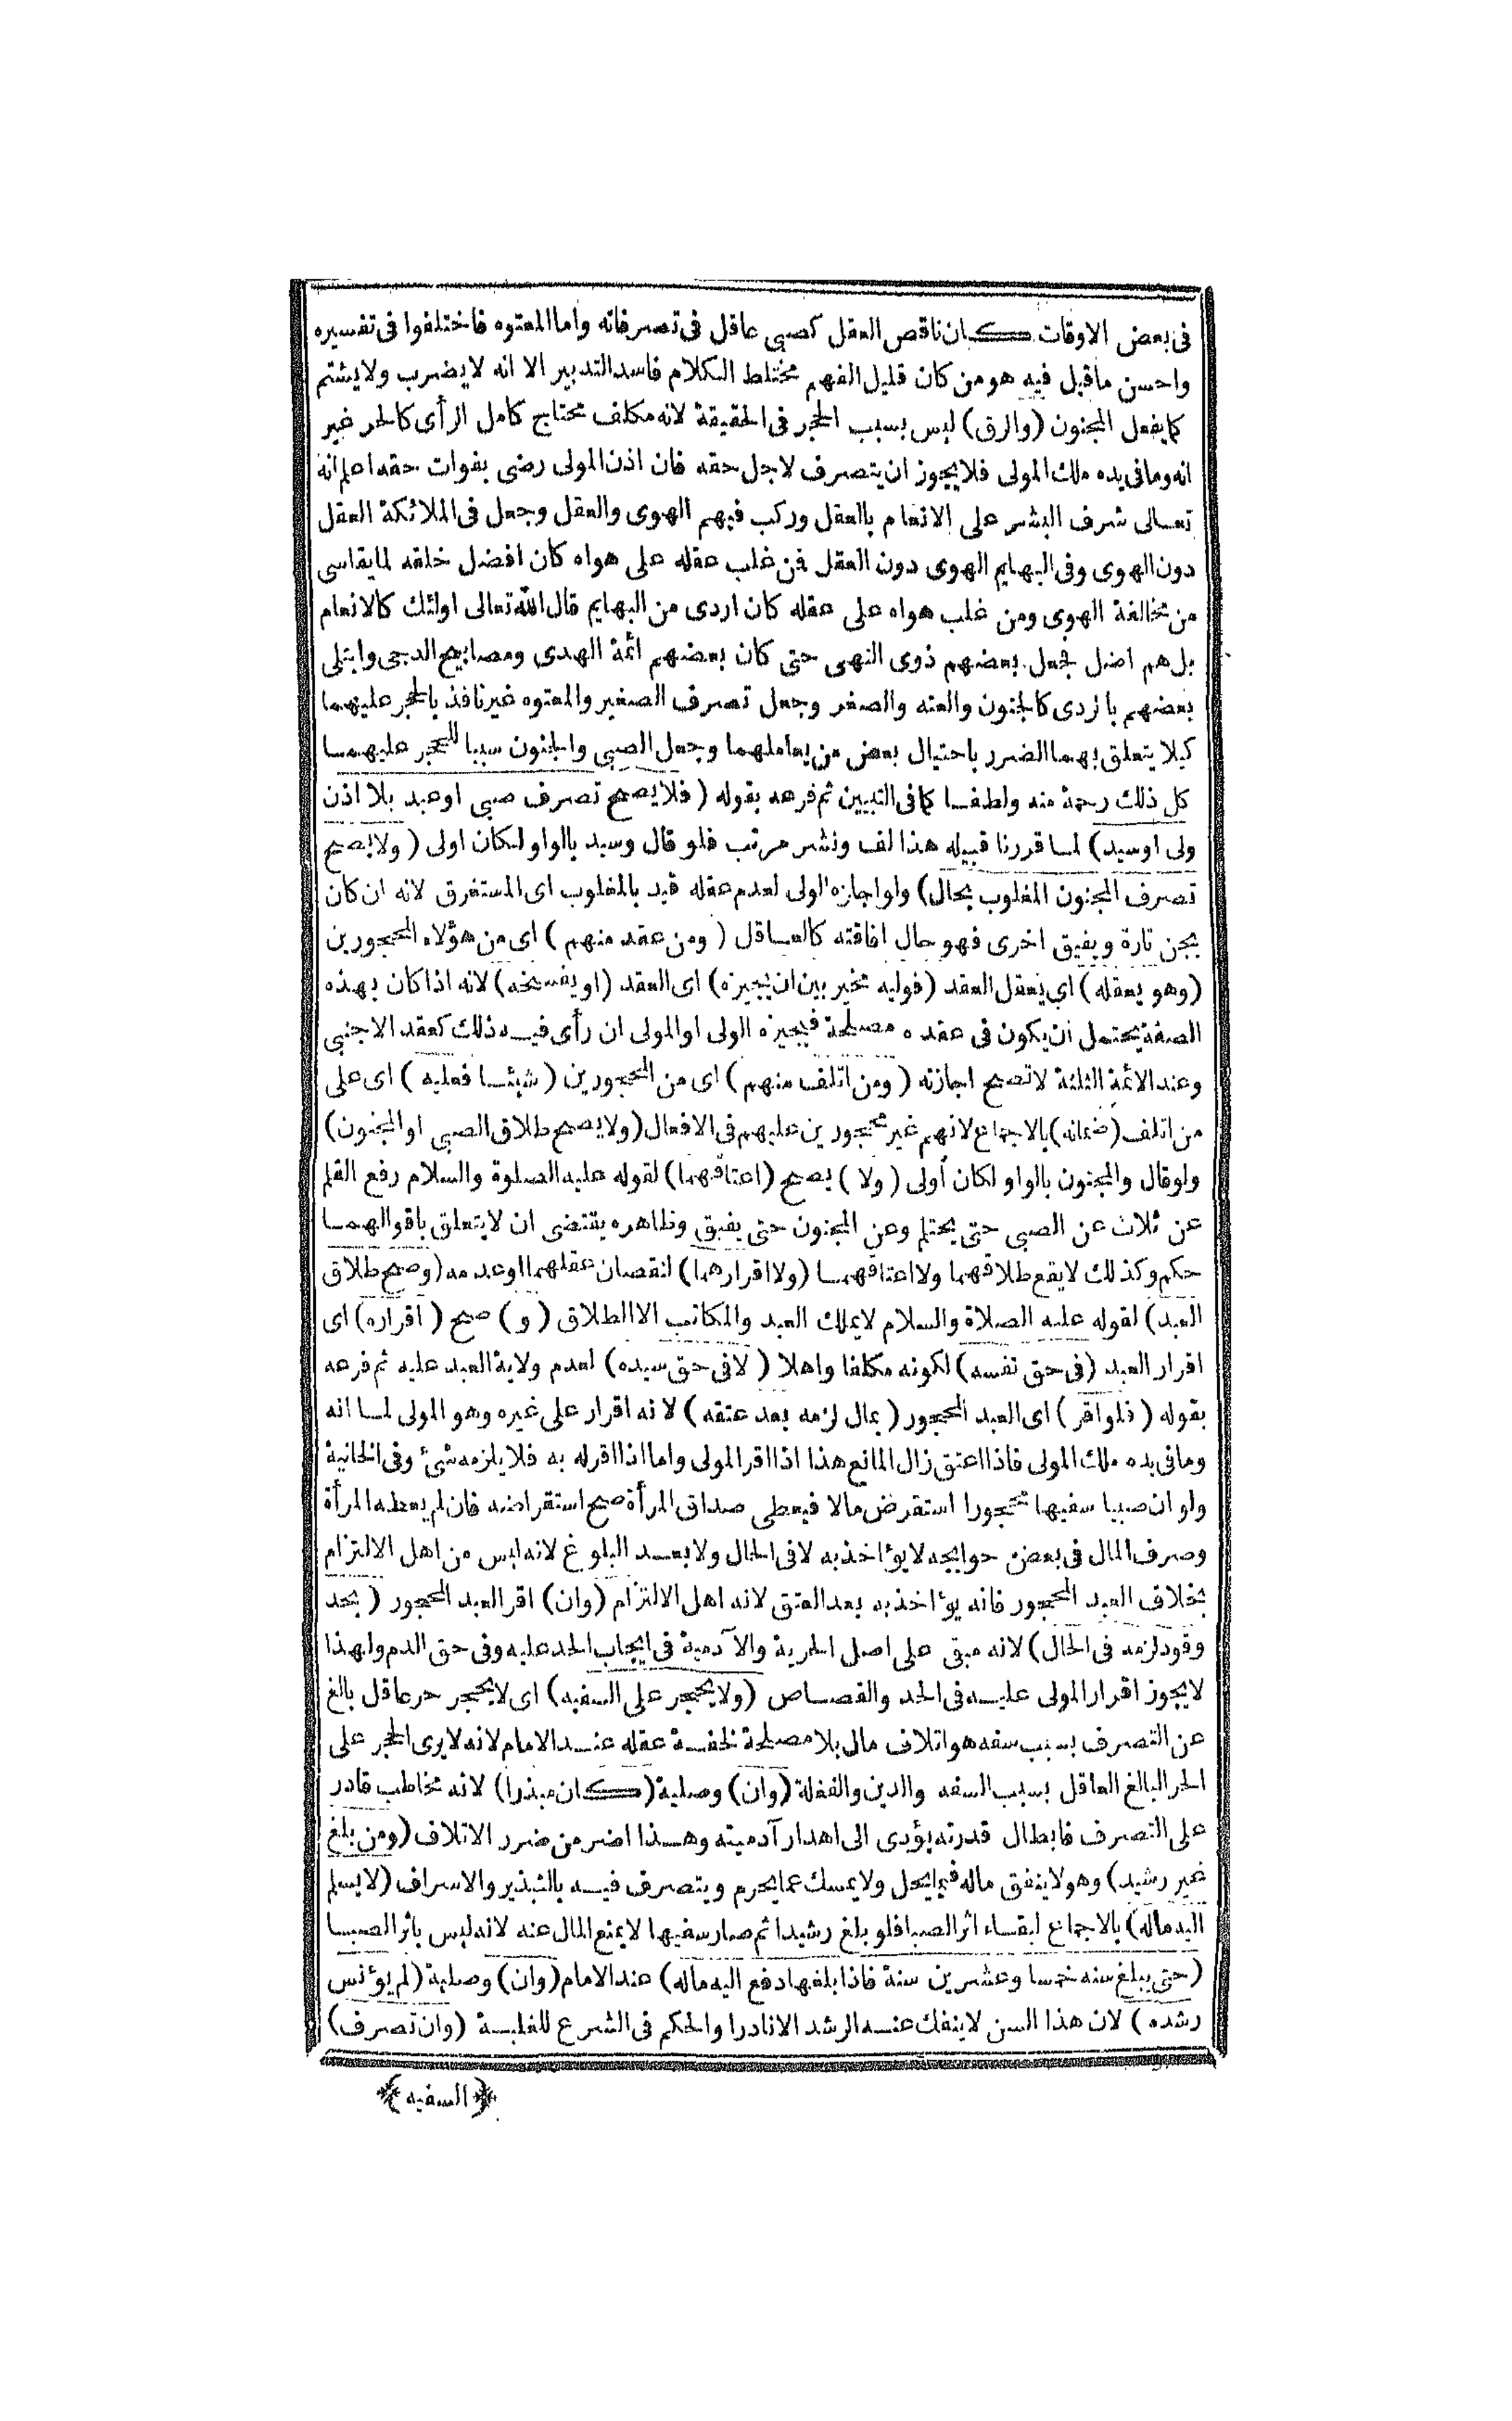 فى بعض الاوقات كان ناقص العقل كصبي عاقل فى تصرفاته واما المعتوه فاختلفوا فى تفسيره
واحسن ماقيل فيه هو من كان قليل الفهم مختلط الكلام فاسد التدبير الا انه لايضرب ولايشتم
كما يفعل المجنون (والرق) ليس بسبب الحجر فى الحقيقة لانه مكلف محتاج كامل الرأى كالحر غير
انه وما فى يده ملك المولى فلا يجوز ان يتصرف لاجل حقه فان اذن المولى رضى بفوات حقه اعلم انه
تعالى شرف البشر على الانعام بالعقل وركب فيهم الهوى والعقل وجعل فى الملائكة العقل
دون الهوى وفى البهايم الهوى دون العقل فمن غلب عقله على هواه كان افضل خلقه لما يقاسى
من مخالفة الهوى ومن غلب هواه على عقله كان اردى من البهايم قال الله تعالى اولئك كالانعام
بل هم اضل فجعل بعضهم ذوى النهى حتى كان بعضهم ائمة الهدى ومصابيح الدجى وابتلى
بعضهم بالردى كالجنون والعته والصغر وجعل تصرف الصغير والمعتوه غير نافذ بالحجر عليهما
كيلا يتعلق بهما الضرر باحتيال بعض من يعاملهما وجعل الصبى والجنون سببا للحجر عليهما
كل ذلك رحمة منه ولطفا كما فى التبيين ثم فرعه بقوله (فلايصح تصرف صبى اوعبد بلا اذن
ولى اوسيد) لما قررنا قبيله هذا لف ونشر مرتب فلو قال وسيد بالواو لكان اولى (ولايصح
تصرف المجنون المغلوب بحال) ولو اجازه الولى لعدم عقله قيد بالمغلوب اى المستغرق لانه ان كان
يجن تارة ويفيق اخرى فهو حال افاقته كالعاقل (ومن عقد منهم) اى من هؤلاء المحجورين
(وهو يعقله) اى يعقل العقد (فوليه مخير بين ان يجيزه) اى العقد (او يفسخه) لانه اذا كان بهذه
الصفة يحتمل ان يكون فى عقده مصلحة فيجيزه الولى او المولى ان رأى فيه ذلك كعقد الاجنبى
وعند الائمة الثلثة لاتصح اجازته (ومن اتلف منهم) اى من المحجورين (شيئا فعليه) اى على
من اتلف (ضمانه) بالاجماع لانهم غير محجورين عليهم فى الافعال (ولايصح طلاق الصبى او المجنون)
ولو قال والمجنون بالواو لكان أولى (ولا) يصح (اعتاقهما) لقوله عليه الصلوة والسلام رفع القلم
عن ثلاث عن الصبى حتى يحتلم وعن المجنون حتى يفيق وظاهره يقتضى ان لايتعلق باقوالهما
حكم وكذلك لايقع طلاقهما ولا اعتاقهما (ولا اقرارهما) لنقصان عقلهما او عدمه (وصح طلاق
العبد) لقوله عليه الصلاة والسلام لايملك العبد والمكاتب الا الطلاق (و) صح (اقراره) اى
اقرار العبد (فى حق نفسه) لكونه مكلفا واهلا (لا فى حق سيده) لعدم ولاية العبد عليه ثم فرعه
بقوله (فلو اقر) اى العبد المحجور (بمال لزمه بعد عتقه) لانه اقرار على غيره وهو المولى لما انه
وما فى يده ملك المولى فاذا اعتق زال المانع هذا اذا اقر المولى واما اذا اقر له به فلا يلزمه شئ وفى الخانية
ولو ان صبيا سفيها محجورا استقرض مالا فيعطى صداق المرأة صح استقراضه فان لم يعطه المرأة
وصرف المال فى بعض حوايجه لايؤاخذ به لا فى الحال ولا بعد البلوغ لانه ليس من اهل الالتزام
بخلاف العبد المحجور فانه يؤاخذ به بعد العتق لانه اهل الالتزام (وان) اقر العبد المحجور (بحد
وقود لزمه فى الحال) لانه مبقى على اصل الحرية والآدمية فى ايجاب الحد عليه وفى حق الدم ولهذا
لايجوز اقرار المولى عليه فى الحد والقصاص (ولايحجر على السفيه) اى لايحجر حر عاقل بالغ
عن التصرف بسبب سفه هو اتلاف مال بلا مصلحة لخفة عقله عند الامام لانه لايرى الحجر على
الحر البالغ العاقل بسبب السفه والدين والغفلة (وان) وصلية (كان مبذرا) لانه مخاطب قادر
على التصرف فابطال قدرته يؤدى الى اهدار آدميته وهذا اضر من ضرر الاتلاف (ومن بلغ
غير رشيد) وهو لاينفق ماله فيما يحل ولايمسك عما يحرم ويتصرف فيه بالتبذير والاسراف (لايسلم
اليه ماله) بالاجماع لبقاء اثر الصبا فلو بلغ رشيدا ثم صار سفيها لايمنع المال عنه لانه ليس باثر الصبا
(حتى يبلغ سنه خمسا وعشرين سنة فاذا بلغها دفع اليه ماله) عند الامام (وان) وصلية (لم يؤنس
رشده) لان هذا السن لاينفك عنه الرشد الا نادرا والحكم فى الشرع للغلبة (وان تصرف)
﴿السفيه﴾